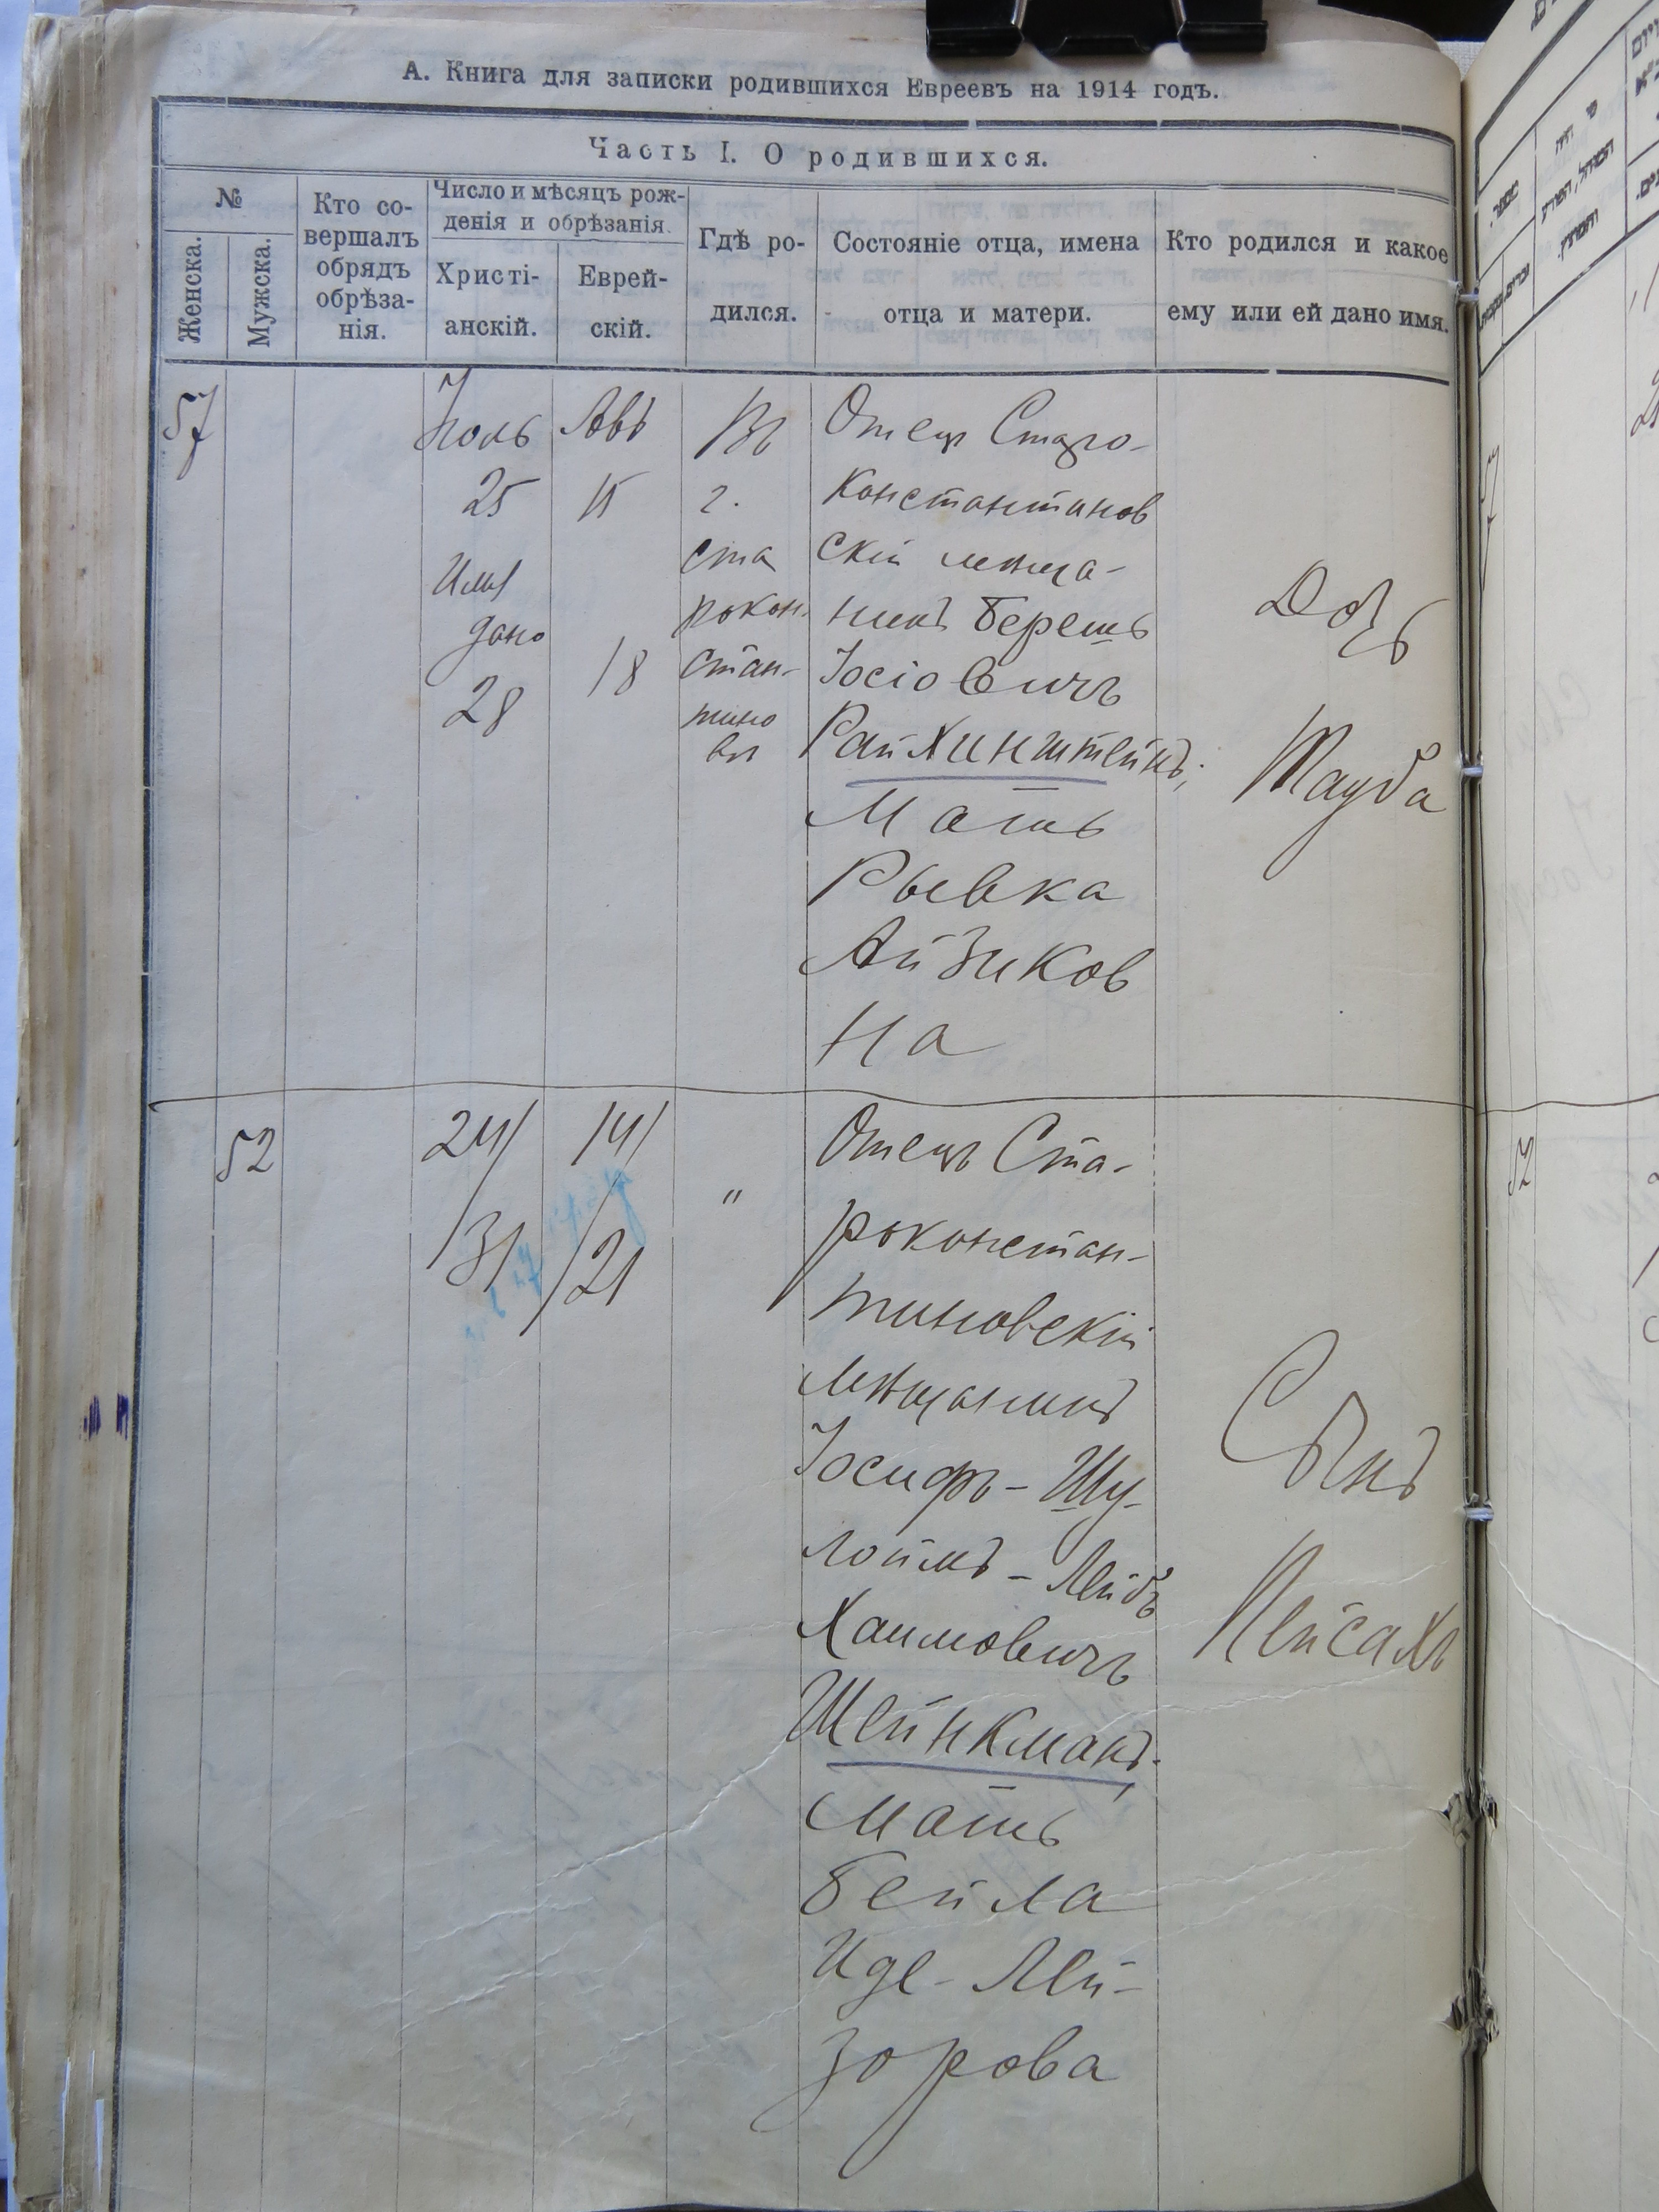 А. Книга для записки родившихся Евреевъ на 1914 годъ.
Часть I. О родившихся.
№
Женска.
Мужска.
Кто со-
вершалъ
обрядъ
обрѣза-
нія.
Число и мѣсяцъ рож-
денія и обрѣзанія.
Христі-
анскій.
Еврей-
скій.
Гдѣ ро-
дился.
Состояніе отца, имена
отца и матери.
Кто родился и какое
ему или ей дано имя.
57
Іюль
25
Имя
дано
28
Авъ
15
18
Въ
г.
Ста
рокон-
стан-
тино
вѣ
Отецъ Старо-
константинов
скій мѣща-
нинъ Берешъ
Іосіовичъ
Райхинштейнъ,
Мать
Рывка
Айзиков
на
Дочь
Тауба
52
24/
/31
14/
/21
"
Отецъ Ста-
роконстан-
тиновскій
мѣщанинъ
Іосифъ-Шу-
лоимъ-Лейбъ
Хаимовичъ
Шейнкманъ.
Мать
Бейла
Иде-Лей-
зорова
Сынъ
Пейсахъ